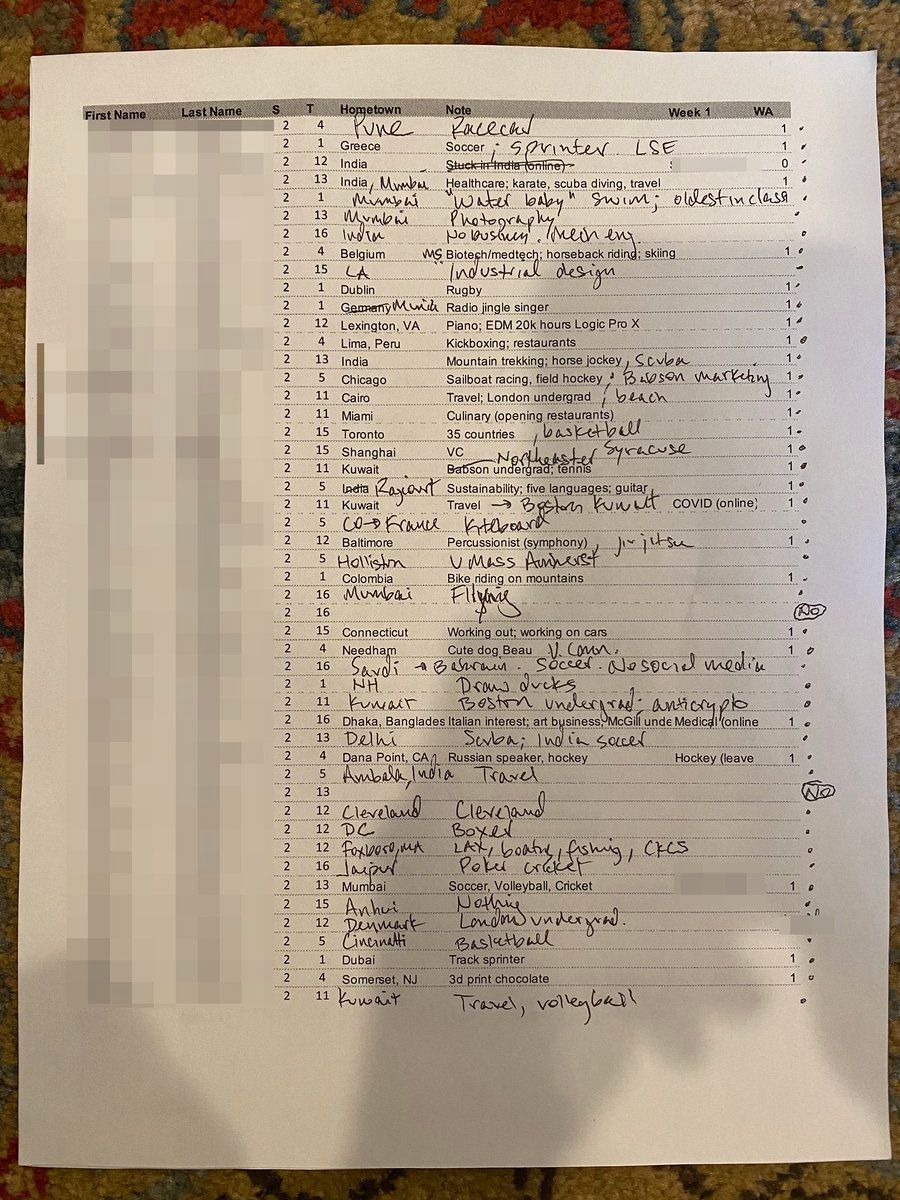 First Name Last Name S T Hometown Note Week 1 WA
2 4 Pune Racecar 1
2 1 Greece Soccer ; sprinter LSE 1
2 12 India Stuck in India (online) 0
2 13 India, Mumbai Healthcare; karate, scuba diving, travel 1
2 1 Mumbai "Water baby" swim; oldest in class 1
2 13 Mumbai Photography
2 16 India No business. Mech eng.
2 4 Belgium MS Biotech/medtech; horseback riding; skiing 1
2 15 LA Industrial design
2 1 Dublin Rugby 1
2 1 Germany Munich Radio jingle singer 1
2 12 Lexington, VA Piano; EDM 20k hours Logic Pro X 1
2 4 Lima, Peru Kickboxing; restaurants 1
2 13 India Mountain trekking; horse jockey, scuba 1
2 5 Chicago Sailboat racing, field hockey ; Babson marketing 1
2 11 Cairo Travel; London undergrad ; beach 1
2 11 Miami Culinary (opening restaurants) 1
2 15 Toronto 35 countries , basketball 1
2 15 Shanghai VC Syracuse 1
2 11 Kuwait Babson undergrad; tennis Northeaster 1
2 5 India Sustainability; five languages; guitar 1
2 11 Kuwait Travel → Boston Kuwait COVID (online) 1
2 5 CO → France Kiteboard
2 12 Baltimore Percussionist (symphony) , jiujitsu 1
2 5 Holliston U Mass Amherst
2 1 Colombia Bike riding on mountains 1
2 16 Mumbai Flying
2 16 No
2 15 Connecticut Working out; working on cars 1
2 4 Needham Cute dog Beau U.Conn. 1
2 16 Saudi → Bahrain. Soccer. No social media
2 1 NH Draw ducks
2 11 Kuwait Boston undergrad; anticrypto
2 16 Dhaka, Banglades Italian interest; art business; McGill unde Medical (online 1
2 13 Delhi Scuba; India soccer
2 4 Dana Point, CA Russian speaker, hockey Hockey (leave 1
2 5 Ambala, India Travel
2 13 No
2 12 Cleveland Cleveland
2 12 DC Boxer
2 12 Foxboro, MA LAX, boating, fishing, CKCS
2 16 Jaipur Poker cricket
2 13 Mumbai Soccer, Volleyball, Cricket 1
2 15 Anhui Nothing
2 12 Denmark London undergrad.
2 5 Cincinatti Basketball
2 1 Dubai Track sprinter 1
2 4 Somerset, NJ 3d print chocolate 1
2 11 Kuwait Travel, volleyball